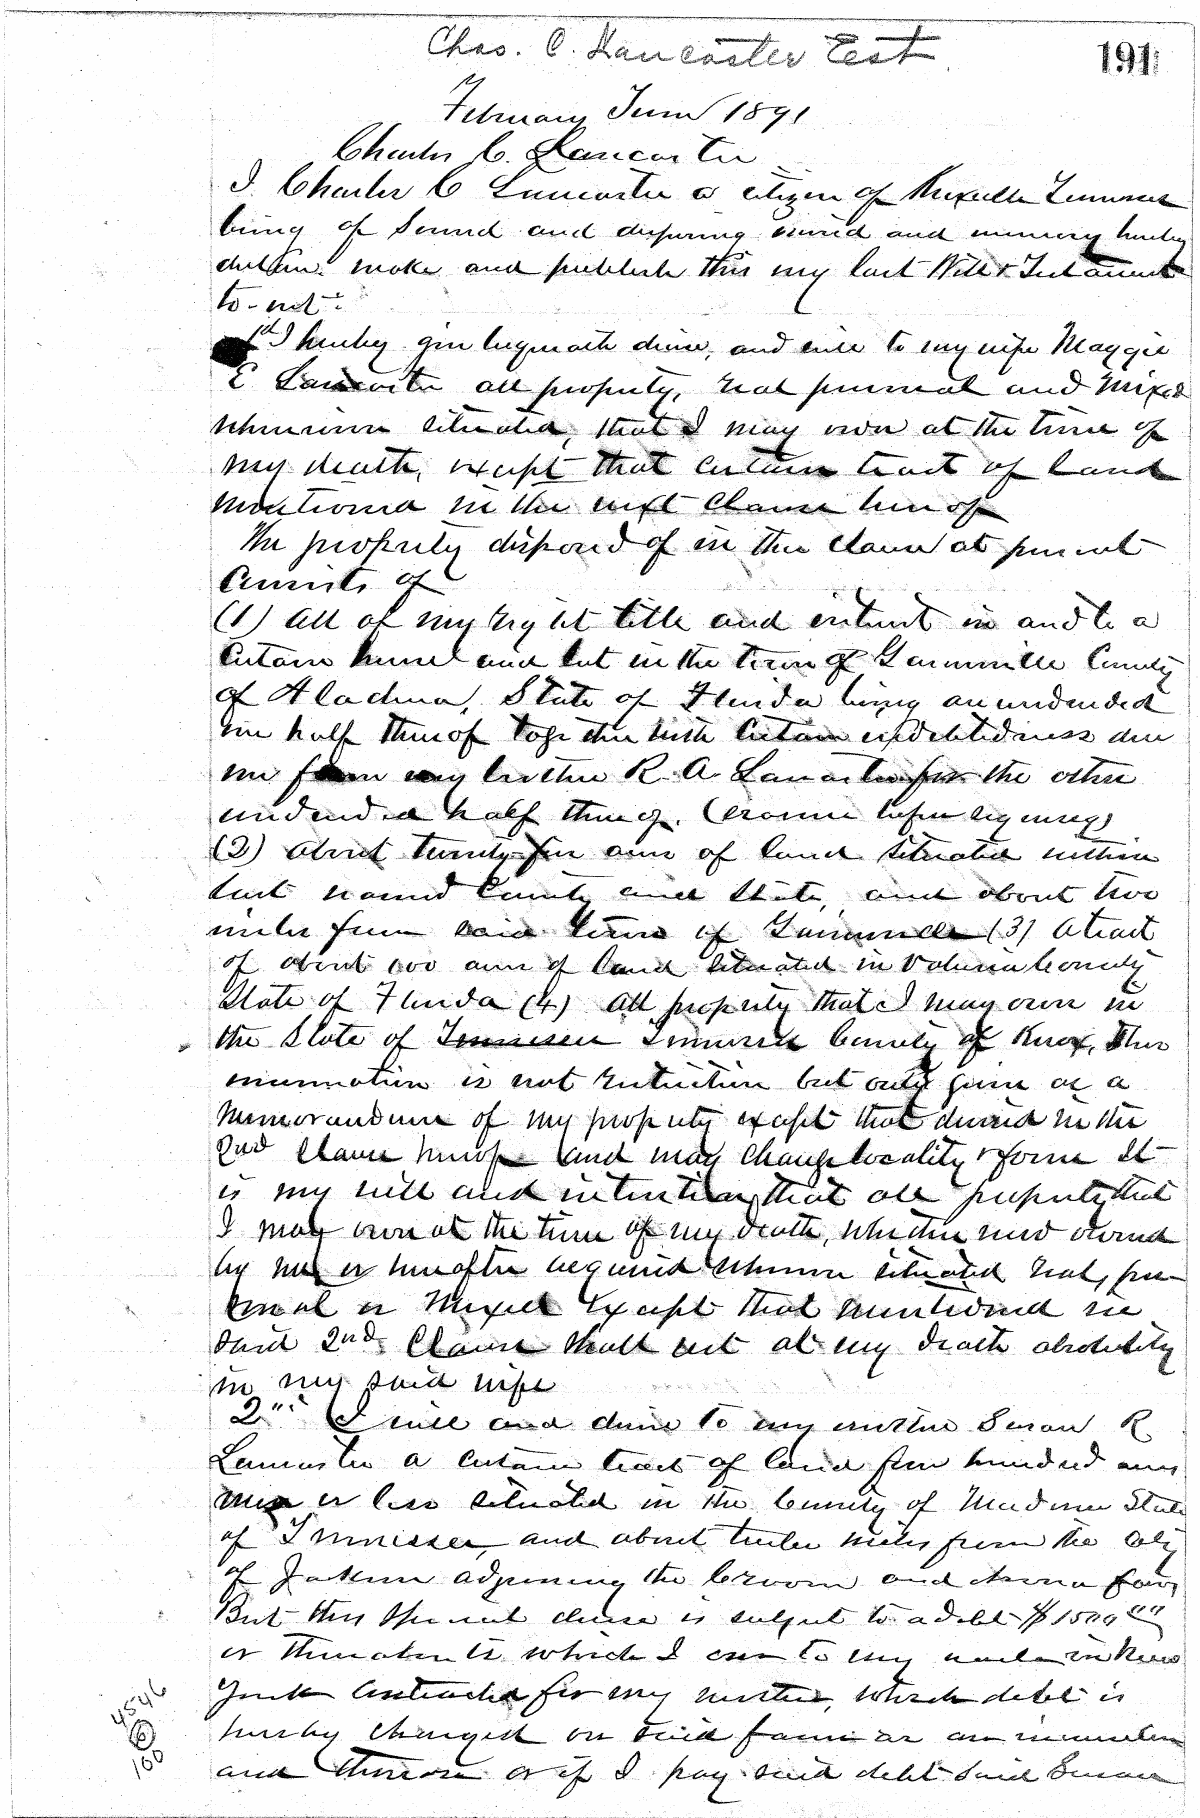 Chas. C. Lancaster Est.
191
February Term 1891
Charles C. Lancaster
I Charles C Lancaster a citizen of Knoxville Tennessee
being of sound and disposing mind and memory hereby
declare make and publish this my last Will & Testament
to-wit:
1st I hereby give bequeath devise, and will to my wife Maggie
E Lancaster all property, real personal and mixed
wherever situated, that I may own at the time of
my death, except that certain tract of land
mentioned in the next clause hereof
The property disposed of in this clause at present
consists of
(1) All of my right title and interest in and to a
certain house and lot in the town of Gainesville County
of Alachua, State of Florida being an undivided
one half thereof together with certain indebtedness due
me from my brother R. A. Lancaster for the other
undivided half thereof.
(2) About twenty five acres of land situated within
last named County and State, and about two
miles from said town of Gainesville (3) A tract
of about 100 acres of land situated in Volusia County
State of Florida (4) All property that I may own in
the State of Tennessee County of Knox, This
enumeration is not restrictive but only given as a
memorandum of my property except that devised in the
2nd clause hereof and may change locality & form It
is my will and intention that all property that
I may own at the time of my death, whether now owned
by me or hereafter acquired wherever situated real, per-
sonal or mixed except that mentioned in
said 2nd Clause shall vest at my death absolutely
in my said wife
2nd I will and devise to my mother Susan R
Lancaster a certain tract of land five hundred acres
more or less situated in the County of Madison State
of Tennessee, and about twelve miles from the City
of Jackson adjoining the Croom and farms
But this special devise is subject to a debt $1500 00
or thereabouts which I owe to my uncle in New
York contracted for my mother, which debt is
hereby charged on said farm as an incumbrance
and thereon or if I pay said debt said Susan
4546
6
100